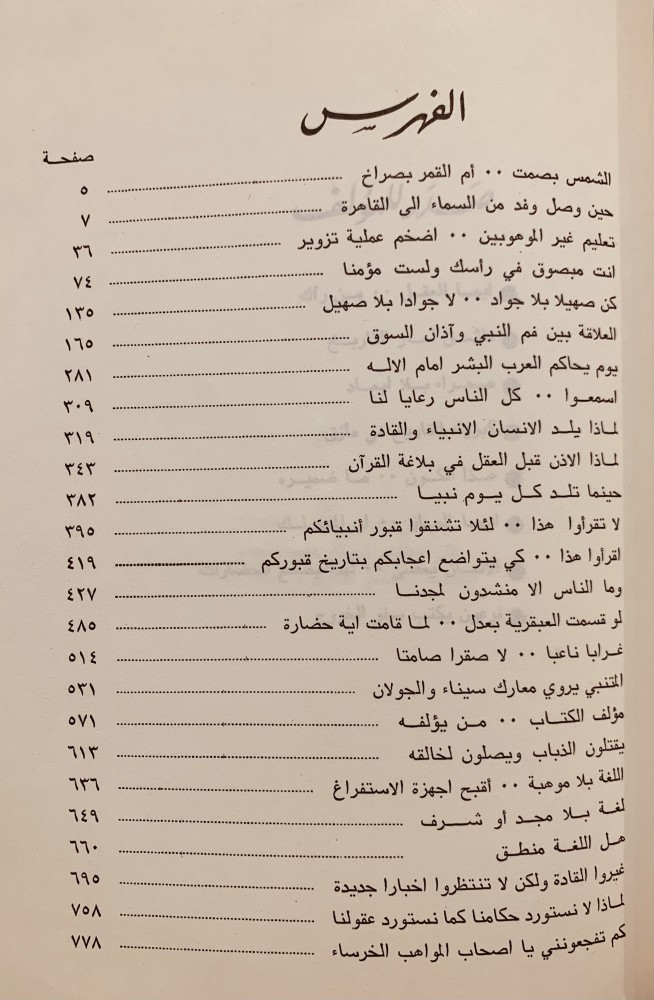 الفهرس
صفحة
الشمس بصمت ٠٠ أم القمر بصراخ ٥
حين وصل وفد من السماء الى القاهرة ٧
تعليم غير الموهوبين ٠٠ اضخم عملية تزوير ٣٦
انت مبصوق في رأسك ولست مؤمنا ٧٤
كن صهيلا بلا جواد ٠٠ لا جوادا بلا صهيل ١٣٥
العلاقة بين فم النبي وآذان السوق ١٦٥
يوم يحاكم العرب البشر امام الاله ٢٨١
اسمعوا ٠٠ كل الناس رعايا لنا ٣٠٩
لماذا يلد الانسان الانبياء والقادة ٣١٩
لماذا الاذن قبل العقل في بلاغة القرآن ٣٤٣
حينما تلد كل يوم نبيا ٣٨٢
لا تقرأوا هذا ٠٠ لئلا تشنقوا قبور أنبيائكم ٣٩٥
اقرأوا هذا ٠٠ كي يتواضع اعجابكم بتاريخ قبوركم ٤١٩
وما الناس الا منشدون لمجدنا ٤٢٧
لو قسمت العبقرية بعدل ٠٠ لما قامت اية حضارة ٤٨٥
غرابا ناعبا ٠٠ لا صقرا صامتا ٥١٤
المتنبي يروي معارك سيناء والجولان ٥٣١
مؤلف الكتاب ٠٠ من يؤلفه ٥٧١
يقتلون الذباب ويصلون لخالقه ٦١٣
اللغة بلا موهبة ٠٠ أقبح اجهزة الاستفراغ ٦٣٦
لغة بلا مجد أو شرف ٦٤٩
هل اللغة منطق ٦٦٠
غيروا القادة ولكن لا تنتظروا اخبارا جديدة ٦٩٥
لماذا لا نستورد حكامنا كما نستورد عقولنا ٧٥٨
كم تفجعونني يا اصحاب المواهب الخرساء ٧٧٨